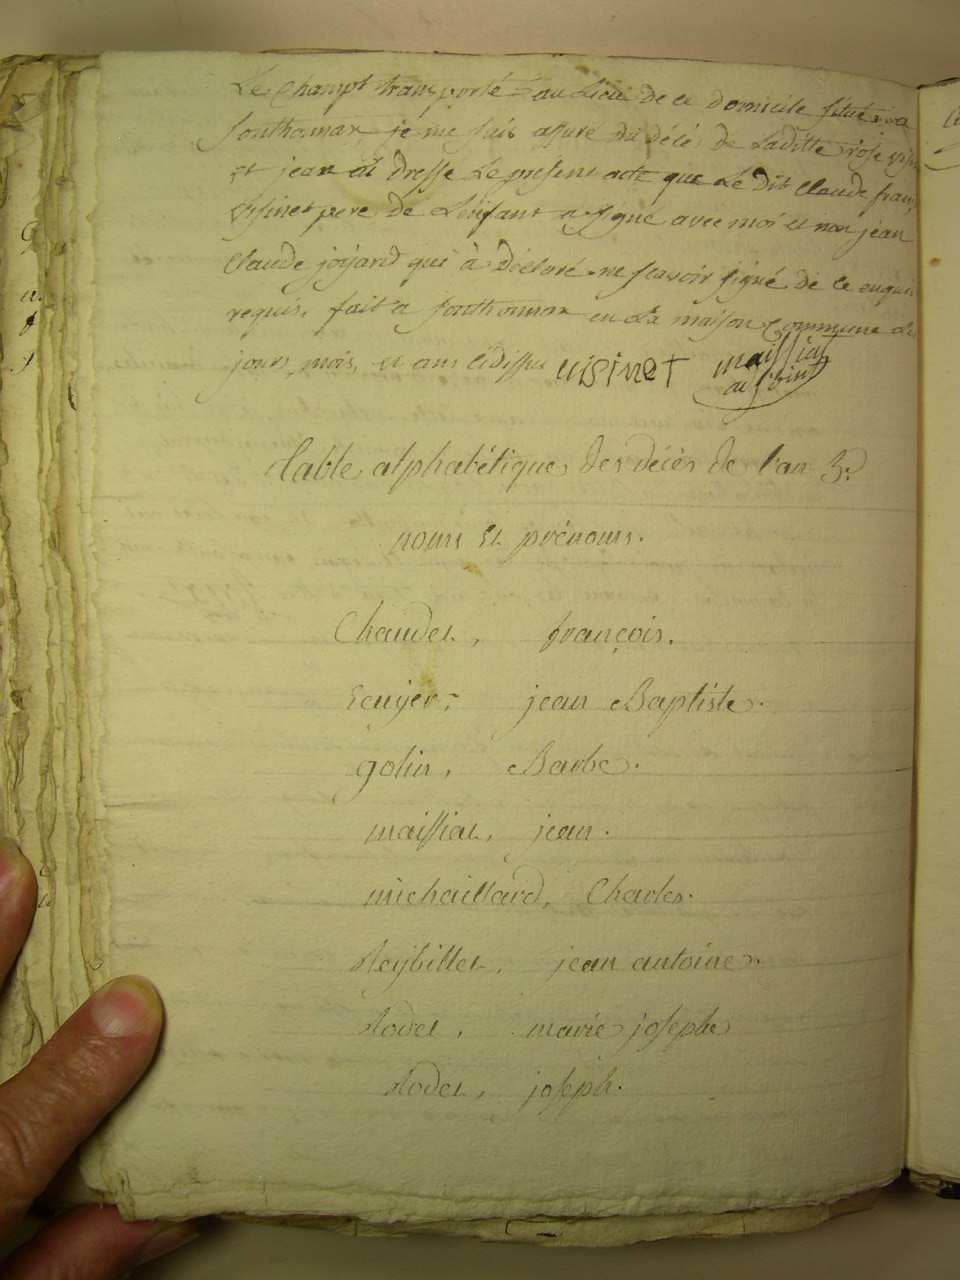 Le Champt transporté au Lieu de ce domicile situé a
fonthomar, je me suis assuré du décès de Laditte rose visin
et jean ai dressé Le présent acte que Le dit Claude franç
visinet pere de L'enfant a signé avec moi et non jean
Claude joyard qui à déclaré ne scavoir signé de ce enquis
requis, fait a fonthomar en La maison Commune Les
jours, mois, et ans cidissus visinet maissiat
adjoint
Table alphabétique des décès de l'an 3.e
noms et prénoms.
Chaudet, françois.
Ecuyer, jean Baptiste.
golin, Barbe.
maissiat, jean.
michaillard, Charles.
Reybillet, jean antoine.
Rodet, marie josephe
Rodet, joseph.